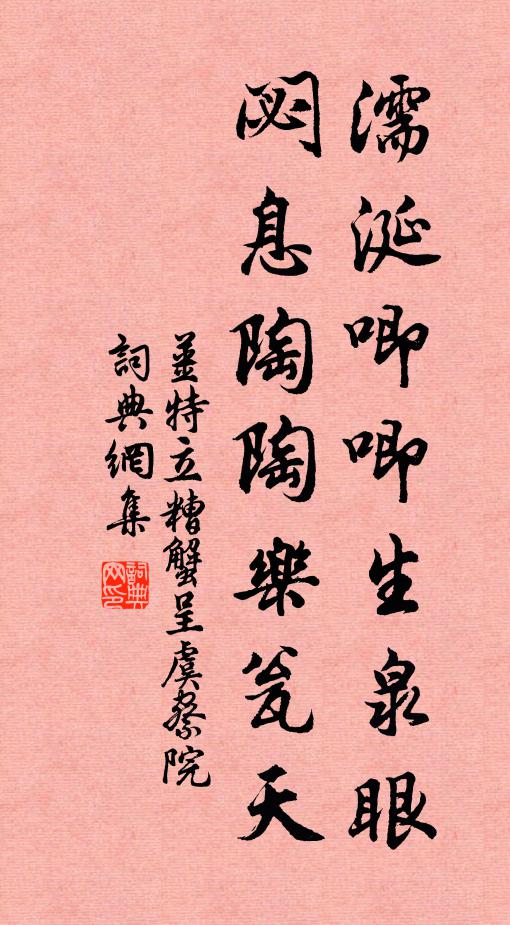 濡涎唧唧生泉眼
閟息陶陶樂瓮天
姜特立糟蟹呈虞察院
詞典網集
詞典網印